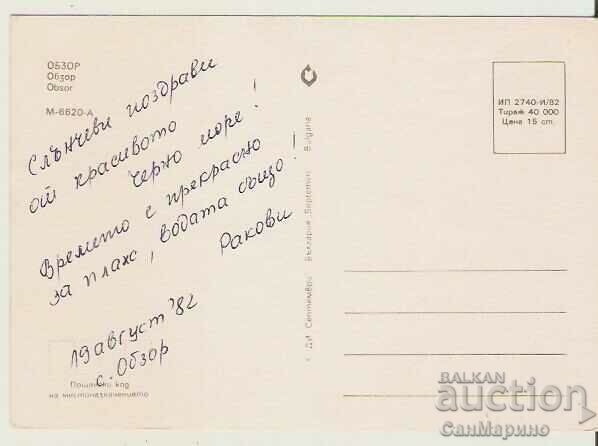 ОБЗОР
Обзор
Obsor
М-6620-А
Слънчеви поздрави
от красивото
Черно море!
Времето е прекрасно
за плаж, водата също!
Ракови
19 август '82
с. Обзор
Пощенски код
на местоназначението
ДИ „Септември" България „Septemvri" Bulgaria
ИП 2740-И/82
Тираж 40 000
Цена 15 ст.
BALKAN
auction
СанМарино